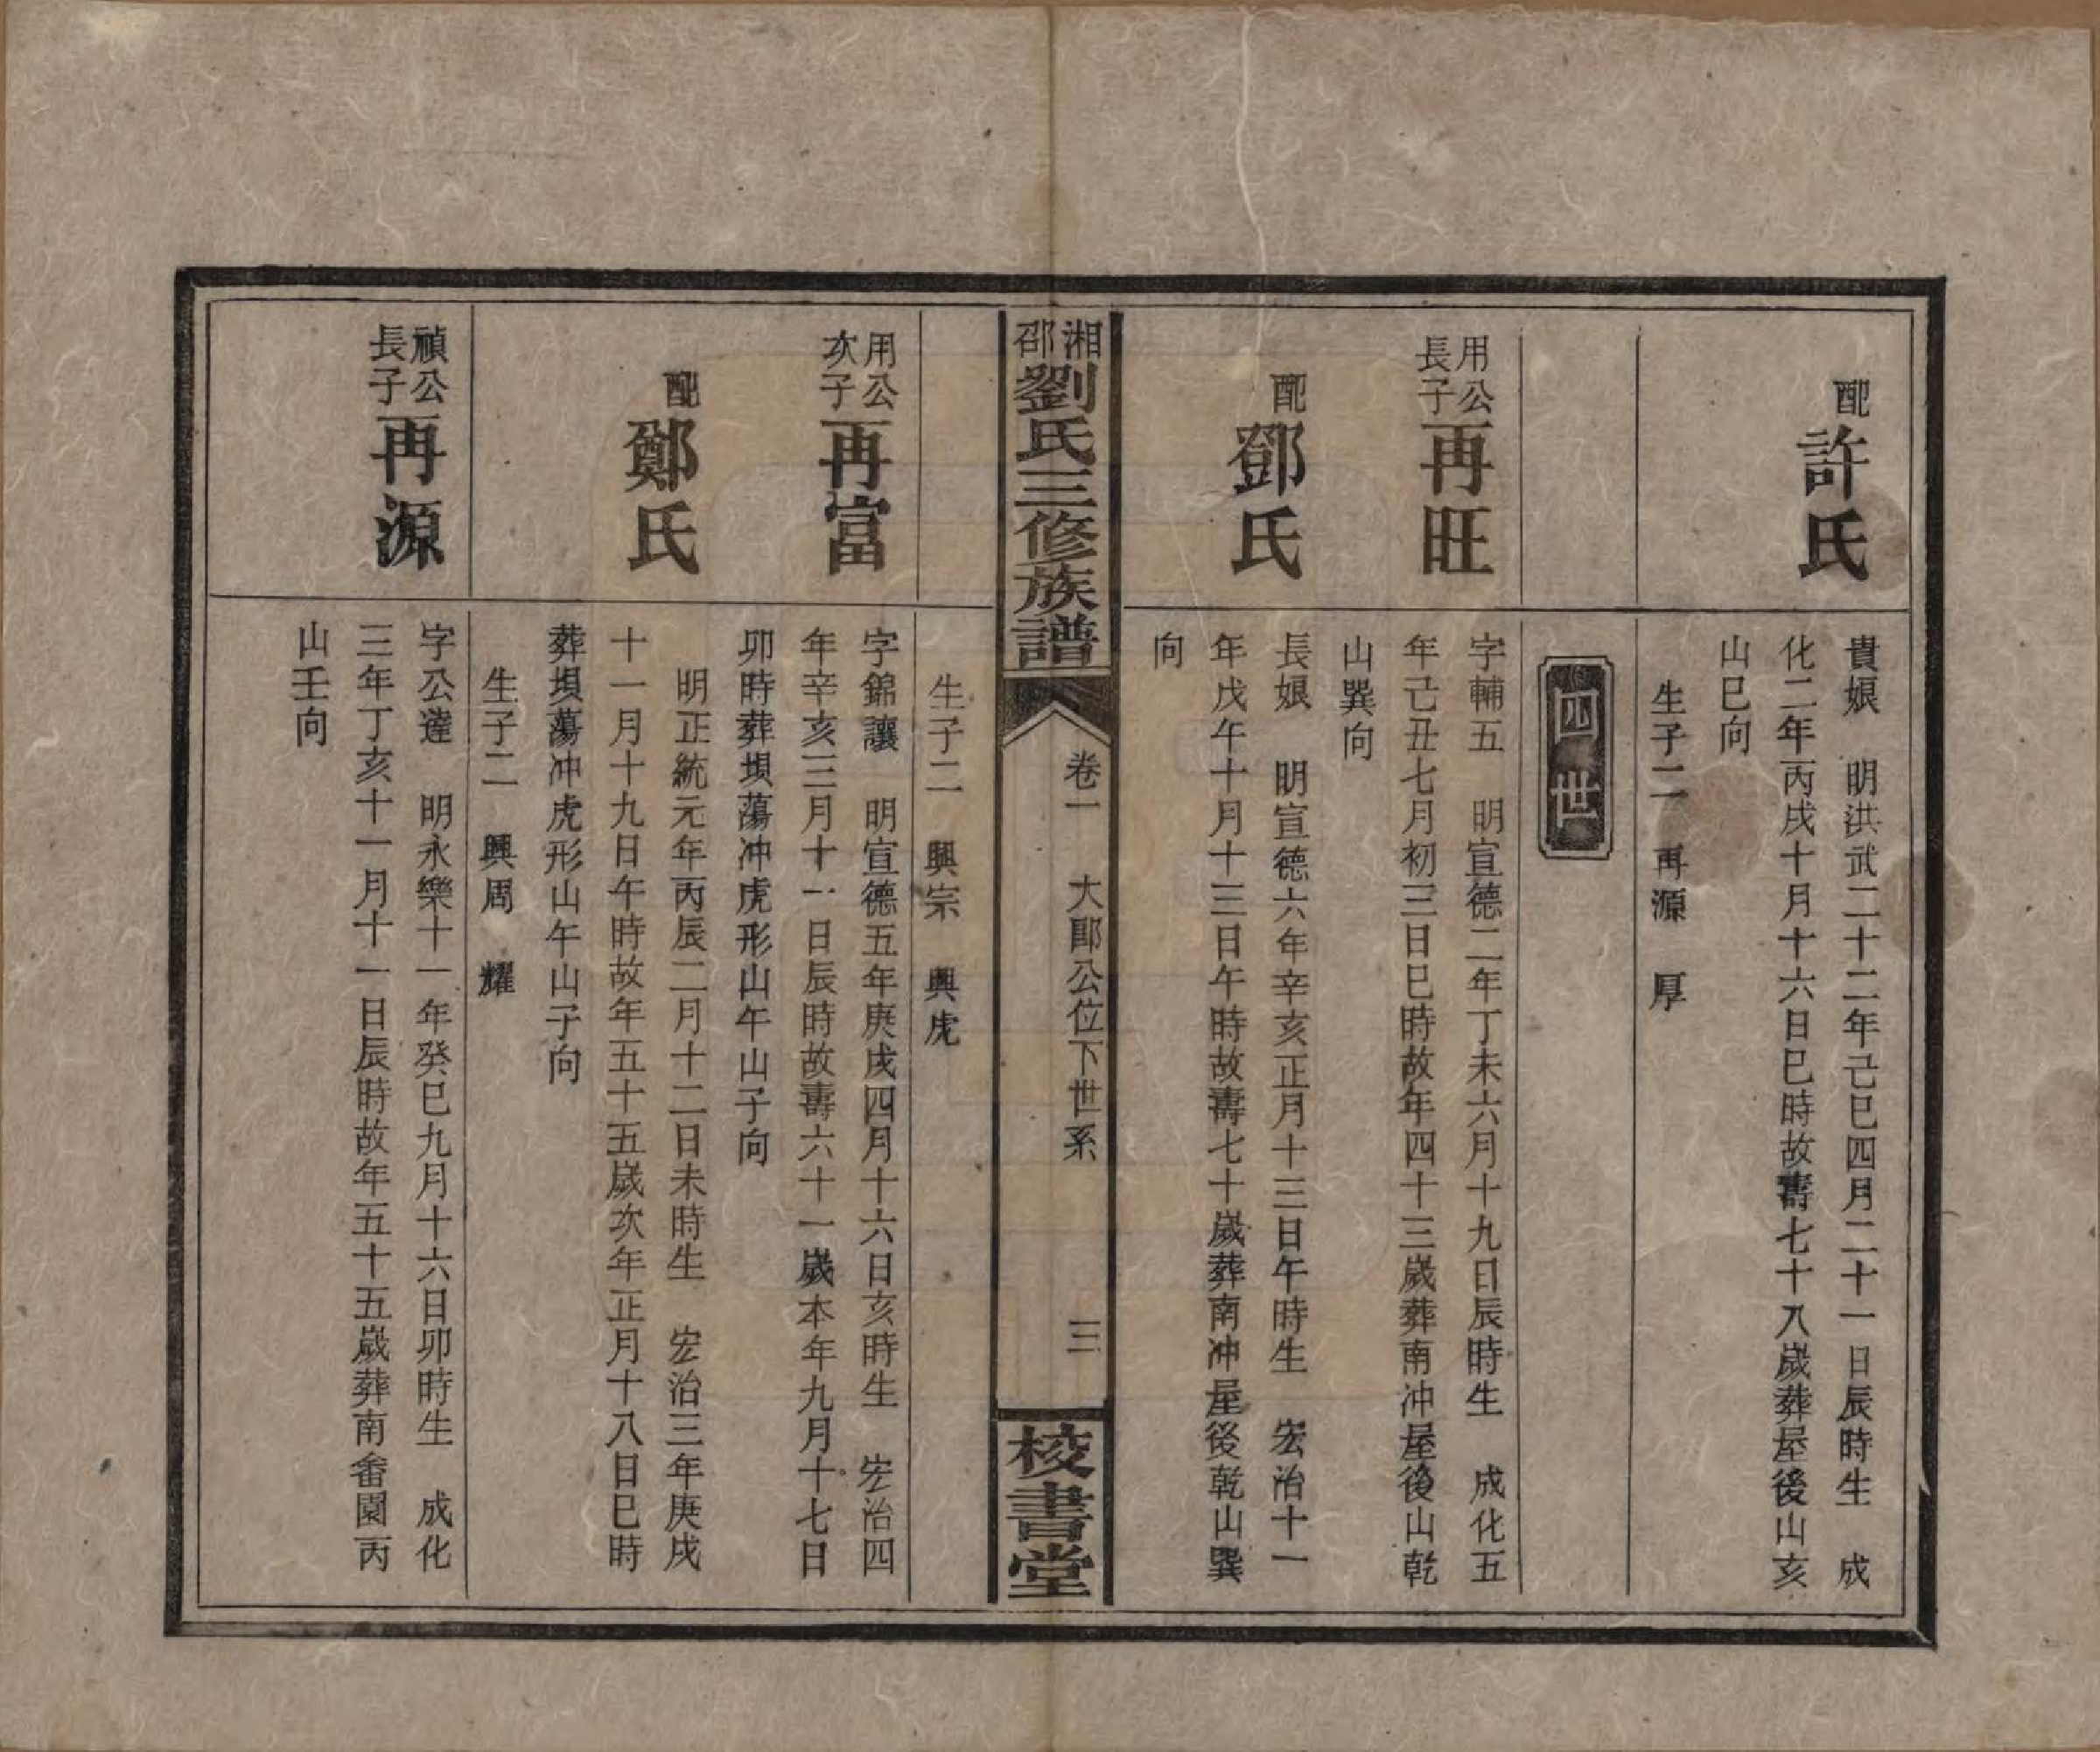 配許氏
貴娘　明洪武二十二年己巳四月二十一日辰時生　成
化二年丙戌十月十六日巳時故壽七十八歲葬屋後山亥
山巳向
生子二　再源　厚
四世
用公長子再旺
字輔五　明宣德二年丁未六月十九日辰時生　成化五
年己丑七月初三日巳時故年四十三歲葬南冲屋後山乾
山巽向
配鄧氏
長娘　明宣德六年辛亥正月十三日午時生　宏治十一
年戊午十月十三日午時故壽七十歲葬南冲屋後乾山巽
向
湘邵劉氏三修族譜
卷一　大郎公位下世系　三
校書堂
生子二　興宗　興虎
用公次子再富
字錦讓　明宣德五年庚戌四月十六日亥時生　宏治四
年辛亥三月十一日辰時故壽六十一歲本年九月十七日
卯時葬垻蕩冲虎形山午山子向
配鄭氏
明正統元年丙辰二月十二日未時生　宏治三年庚戌
十一月十九日午時故年五十五歲次年正月十八日巳時
葬垻蕩冲虎形山午山子向
生子二　興周　耀
禎公長子再源
字公達　明永樂十一年癸巳九月十六日卯時生　成化
三年丁亥十一月十一日辰時故年五十五歲葬南畨園丙
山壬向